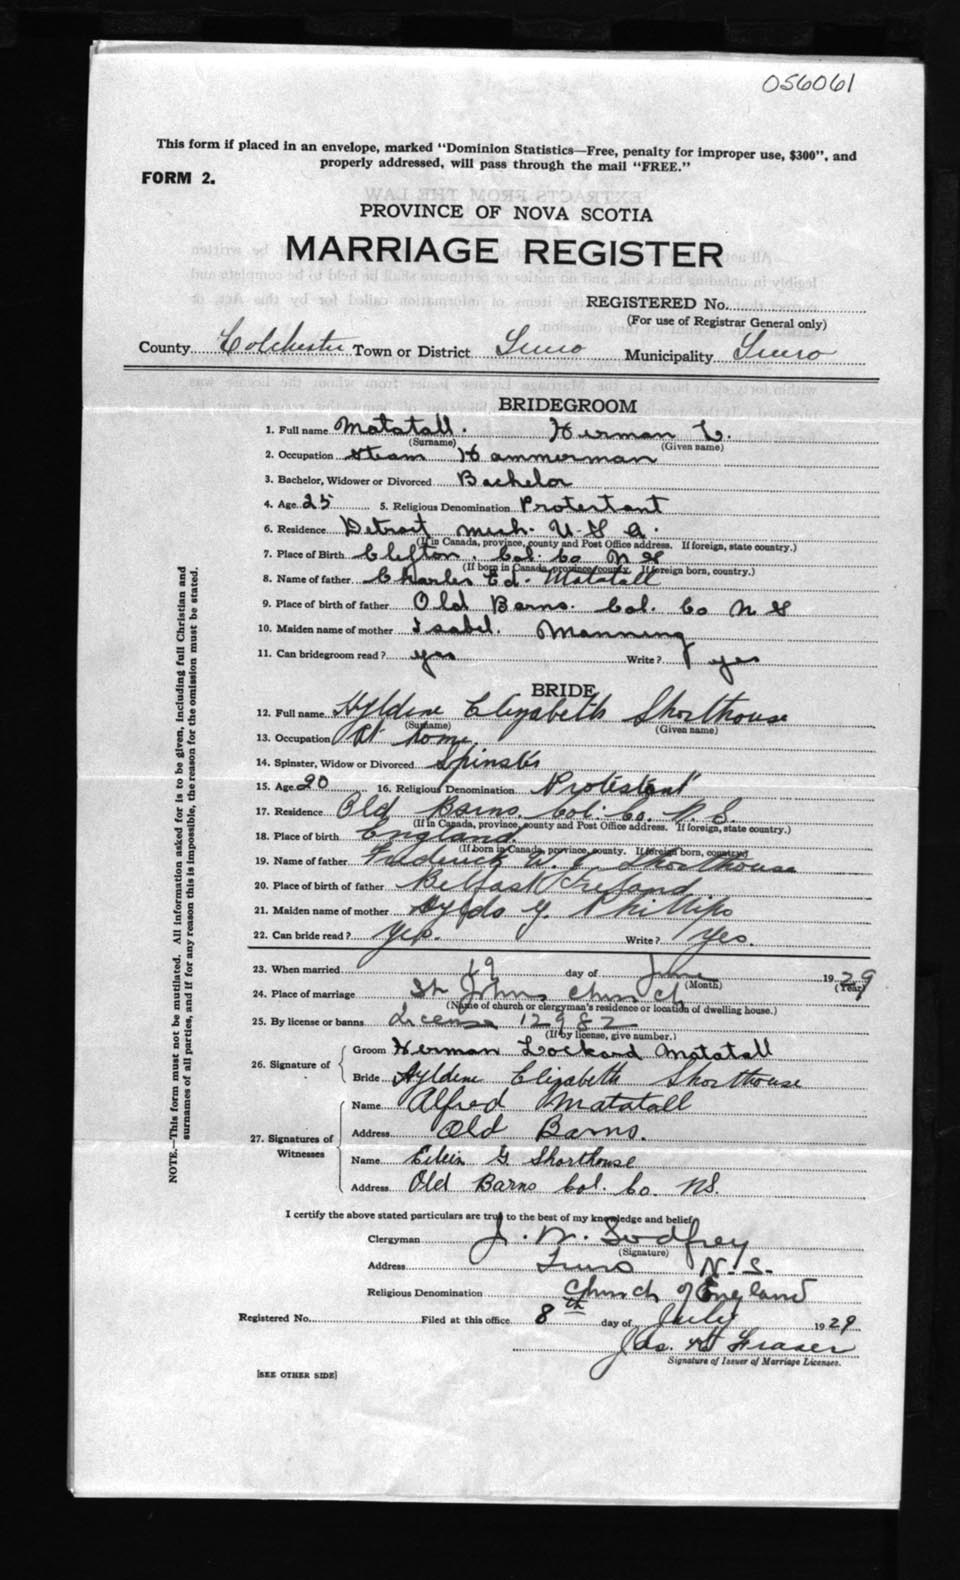 056061
This form if placed in an envelope, marked "Dominion Statistics—Free, penalty for improper use, $300", and
properly addressed, will pass through the mail "FREE."
FORM 2.
PROVINCE OF NOVA SCOTIA
MARRIAGE REGISTER
REGISTERED No.
(For use of Registrar General only)
County Colchester Town or District Truro Municipality Truro
BRIDEGROOM
1. Full name Matatall. Herman L.
(Surname) (Given name)
2. Occupation Steam Hammerman
3. Bachelor, Widower or Divorced Bachelor
4. Age 25 5. Religious Denomination Protestant
6. Residence Detroit Mich. U.S.A.
(If in Canada, province, county and Post Office address. If foreign, state country.)
7. Place of Birth Clifton. Col. Co N S
(If born in Canada, province, county. If foreign born, country.)
8. Name of father Charles Ed. Matatall
9. Place of birth of father Old Barns. Col. Co N S
10. Maiden name of mother Isabel. Manning
11. Can bridegroom read? yes Write? yes
BRIDE
12. Full name Hyldene Elizabeth Shorthouse
(Surname) (Given name)
13. Occupation At home
14. Spinster, Widow or Divorced Spinster
15. Age 20 16. Religious Denomination Protestant
17. Residence Old Barns Col. Co. N.S.
(If in Canada, province, county and Post Office address. If foreign, state country.)
18. Place of birth England.
(If born in Canada, province, county. If foreign born, country)
19. Name of father Frederick W. Shorthouse
20. Place of birth of father Belfast Ireland
21. Maiden name of mother Phillips
22. Can bride read? Yes. Write? Yes.
23. When married 19 day of June 1929
(Month) (Year)
24. Place of marriage St Johns Church
(Name of church or clergyman's residence or location of dwelling house.)
25. By license or banns License 12982
(If by license, give number.)
26. Signature of Groom Herman Lockard Matatall
Bride Hyldene Elizabeth Shorthouse
27. Signatures of Witnesses Name Alfred Matatall
Address Old Barns.
Name Eileen G. Shorthouse
Address Old Barns Col. Co. NS.
I certify the above stated particulars are true to the best of my knowledge and belief
Clergyman J. W. Godfrey
(Signature)
Address Truro N.S.
Religious Denomination Church of England
Registered No. Filed at this office 8th day of July 1929
Jas. H Fraser
Signature of Issuer of Marriage Licenses.
[SEE OTHER SIDE]
NOTE.—This form must not be mutilated. All information asked for is to be given, including full Christian and
surnames of all parties, and if for any reason this is impossible, the reason for the omission must be stated.